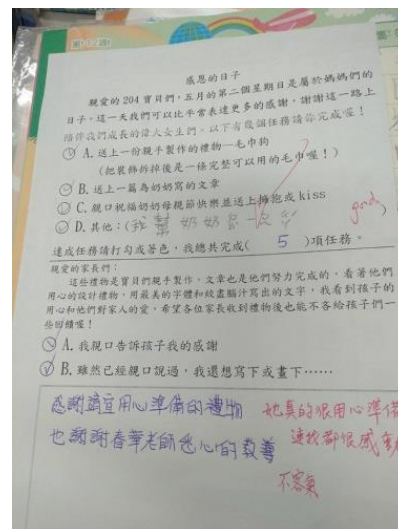 感恩的日子
親愛的 204 寶貝們，五月的第二個星期日是屬於媽媽們的
日子，這一天我們可以比平常表達更多的感謝，謝謝這一路上
陪伴我們成長的偉大女生們。以下有幾個任務請你完成喔！
A. 送上一份親手製作的禮物—毛巾狗
(把裝飾拆掉後是一條完整可以用的毛巾喔！)
B. 送上一篇為奶奶寫的文章
C. 親口祝福奶奶母親節快樂並送上擁抱或 kiss
D. 其他：(我幫奶奶 good )
達成任務請打勾或著色，我總共完成( 5 )項任務。
親愛的家長們：
這些禮物是寶貝們親手製作，文章也是他們努力完成的，看著他們
用心的設計禮物，用最美的字體和絞盡腦汁寫出的文字，我看到孩子的
用心和他們對家人的愛，希望各位家長收到禮物後也能不吝給孩子們一
些回饋喔！
A. 我親口告訴孩子我的感謝
B. 雖然已經親口說過，我還想寫下或畫下……
感謝 宣用心準備的禮物 她真的很用心準備
也謝謝春華老師悉心的教導 連我都很感動
不客氣